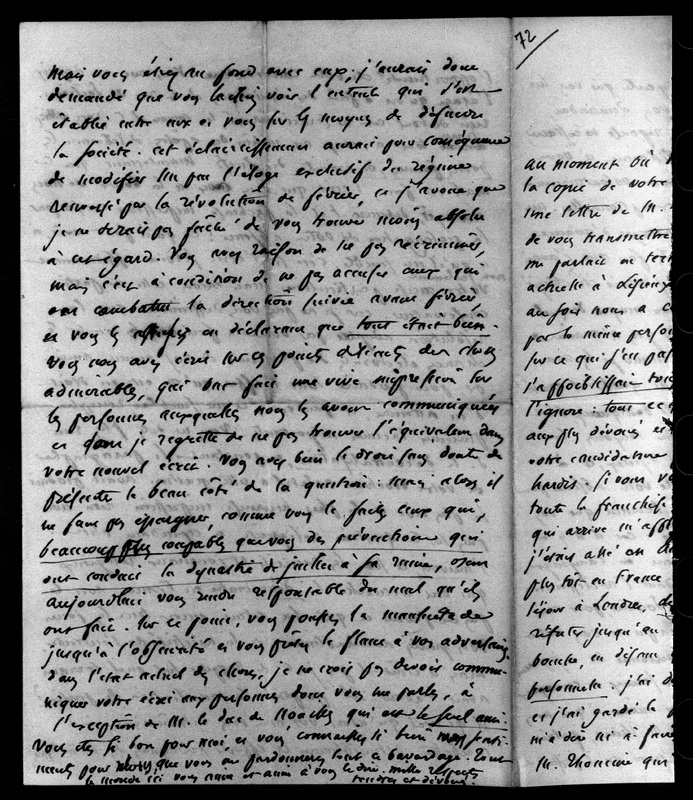 mais vous étiez au fond avec eux; j'aurais donc
demandé que vous laissiez voir l'entente qui s'est
établie entre eux et vous sur les moyens de défendre
la société. cet éclaircissement aurait pour conséquence
de modifier un peu l'éloge exclusif du régime
renversé par la révolution de février, et j'avoue que
je ne serais pas fâché de vous trouver moins absolu
à cet égard. Vous avez raison de ne pas récriminer,
mais c'est à condition de ne pas accuser ceux qui
ont combattu la direction suivie avant février,
et vous les en déclarant que tout était bien.
Vous nous avez écrit sur ces points délicats des choses
admirables, qui ont fait une vive impression sur
les personnes auxquelles nous les avons communiquées
et dont je regrette de ne pas trouver l'équivalent dans
votre nouvel écrit. Vous avez bien le droit sans doute de
présenter le beau côté de la question: mais alors il
ne faut pas épargner, comme vous le faites ceux qui,
beaucoup plus coupables que vous des préventions qui
ont conduit la dynastie de juillet à sa ruine, osent
aujourd'hui vous rendre responsable du mal qu'ils
ont fait. Sur ce point, vous poussez la mansuétude
jusqu'à l'obscurité et vous prêtez le flanc à vos adversaires.
dans l'état actuel des choses, je ne crois pas devoir commu-
niquer votre écrit aux personnes dont vous me parlez, à
l'exception de M. le duc de Noailles qui est le seul ami.
Vous êtes si bon pour moi, et vous connaissez si bien mes senti-
ments pour vous, que vous me pardonnerez tout ce bavardage. Tout
le monde ici vous aime et à vous le dire. mille respects
tendres et dévoués.
72
au moment où
la copie de votre
une lettre de M.
de vous transmettre
me parlait en
actuelle à Lisieux
au fois nous a
par la même person
sur ce qui s'en
s'affaiblissait
l'ignore: tout ce
aux plus dévoués et
votre candidature
hardis. Si vous
toute la franchise
qui arrive m'
j'étais allé au
plus tôt en France
séjour à Londres,
réfuter jusqu'au
bouche, en
personnelle. j'ai
et j'ai gardé le
m'a à faire
M. Thomine qui